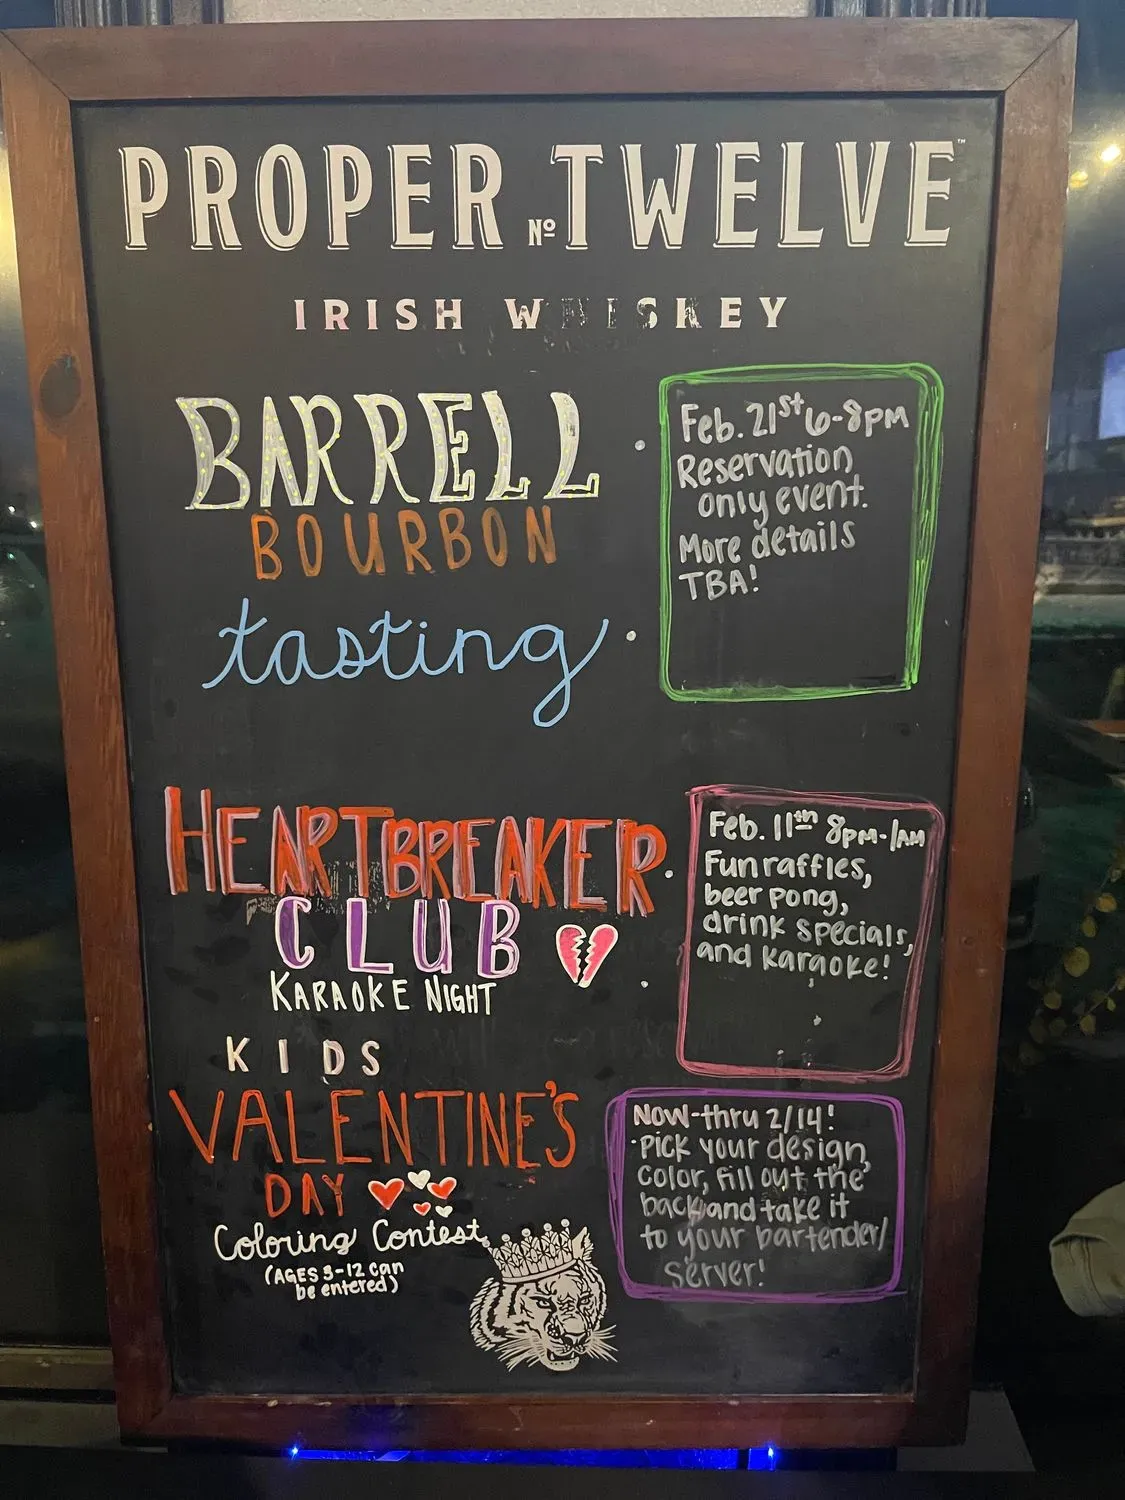 PROPER Nº TWELVE™
IRISH WHISKEY
BARRELL
BOURBON
tasting
Feb. 21st 6-8PM
Reservation
only event.
More details
TBA!
HEARTBREAKER
CLUB
KARAOKE NIGHT
Feb. 11th 8PM-1AM
Fun raffles,
beer pong,
drink specials,
and karaoke!
KIDS
VALENTINE'S
DAY
Coloring Contest
(AGES 3-12 can
be entered)
NOW-thru 2/14!
Pick your design,
color, fill out the
back and take it
to your bartender/
server!